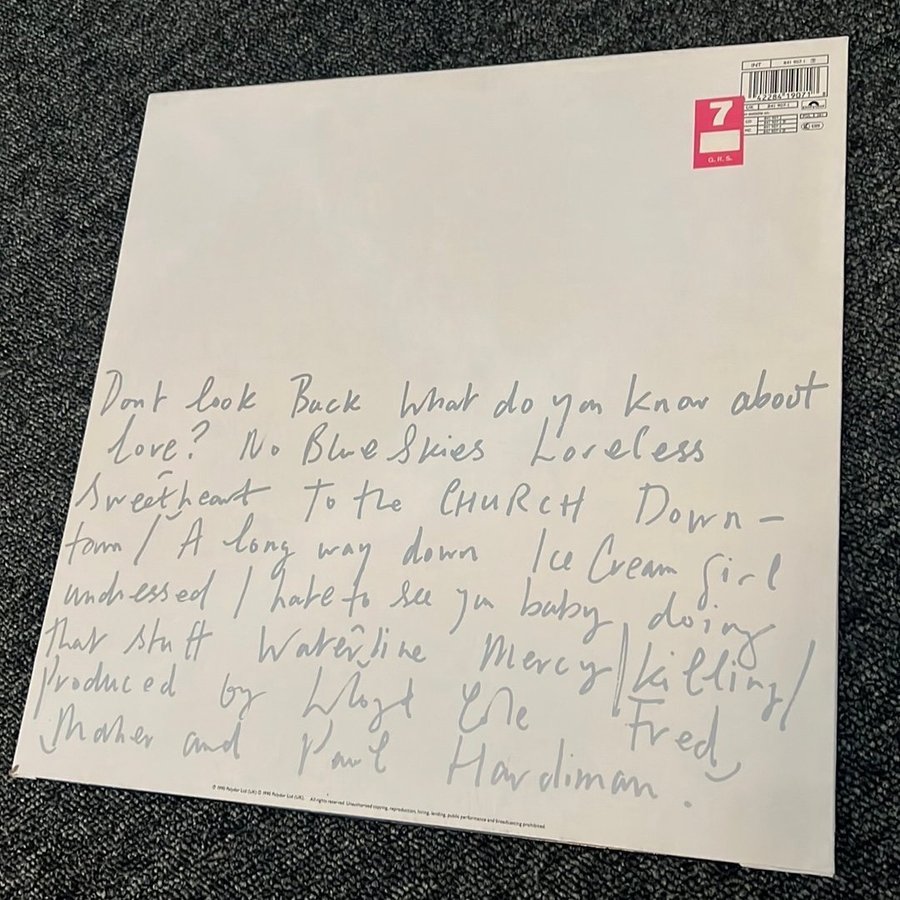 INT
42284 19071
7
G. R. S.
Dont look Back What do you know about
love? No Blue Skies Loveless
Sweetheart To the CHURCH Down-
town / A long way down Ice Cream Girl
undressed I hate to see you baby doing
that stuff Waterline Mercy / killing /
Produced by Lloyd Cole Fred
Maher and Paul Hardiman.
℗ 1990 Polydor Ltd (UK) © 1990 Polydor Ltd (UK). All rights reserved. Unauthorised copying, reproduction, hiring, lending, public performance and broadcasting prohibited.